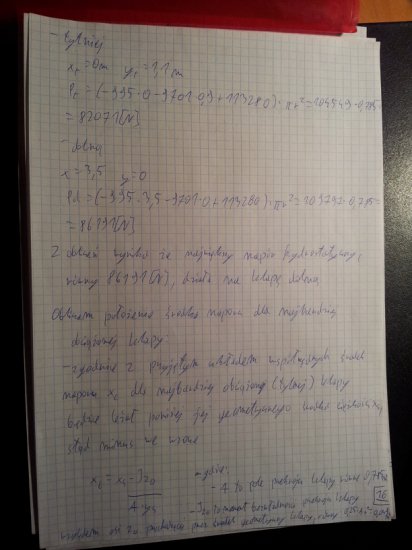 - tylniej
x_t = 0m y_t = 1,1m
P_t = (-995·0-9701·0,9+113280)·πr²=104549·0,785=
= 82071[N]
- dolna
x = 3,5 y = 0
Pd = (-995·3,5-9701·0+113280)·πr²=109797·0,785=
= 86191[N]
Z obliczeń wynika że największy napór hydrostatyczny,
równy 86191[N], działa na klapę dolną
Obliczam położenie środka naporu dla najbardziej
obciążonej klapy:
- zgodnie z przyjętym układem współrzędnych środek
naporu x_0 dla najbardziej obciążonej (tylnej) klapy
będzie leżał poniżej jej geometrycznego środka ciężkości
stąd minus we wzorze
- gdzie:
- A to pole przekroju klapy równe 0,785
- I_zo to moment bezwładności przekroju klapy
względem osi zo przechodzącej przez środek geometryczny klapy, równy
16